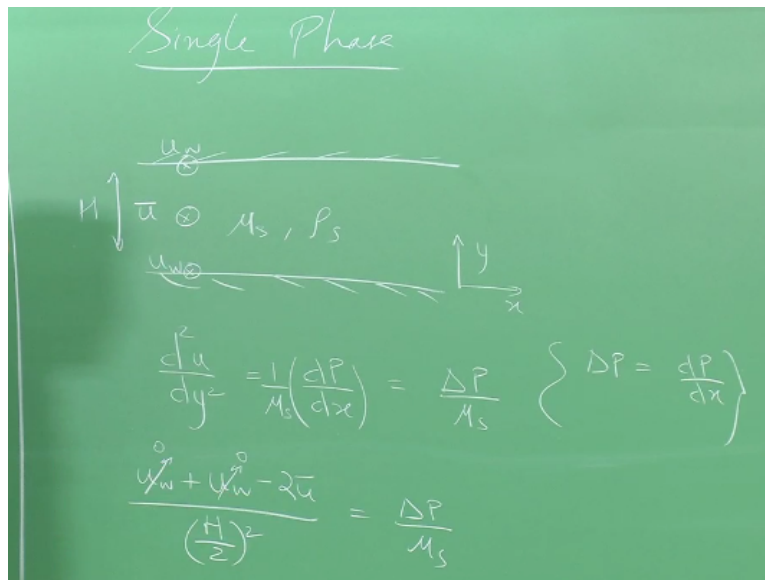 Single Phase
u_w
H ū μ_s, ρ_s
u_w
y
x
d²u/dy² = 1/μ_s (dP/dx) = ΔP/μ_s { ΔP = dP/dx }
(u_w⁰ + u_w⁰ - 2ū)/(H/2)² = ΔP/μ_s